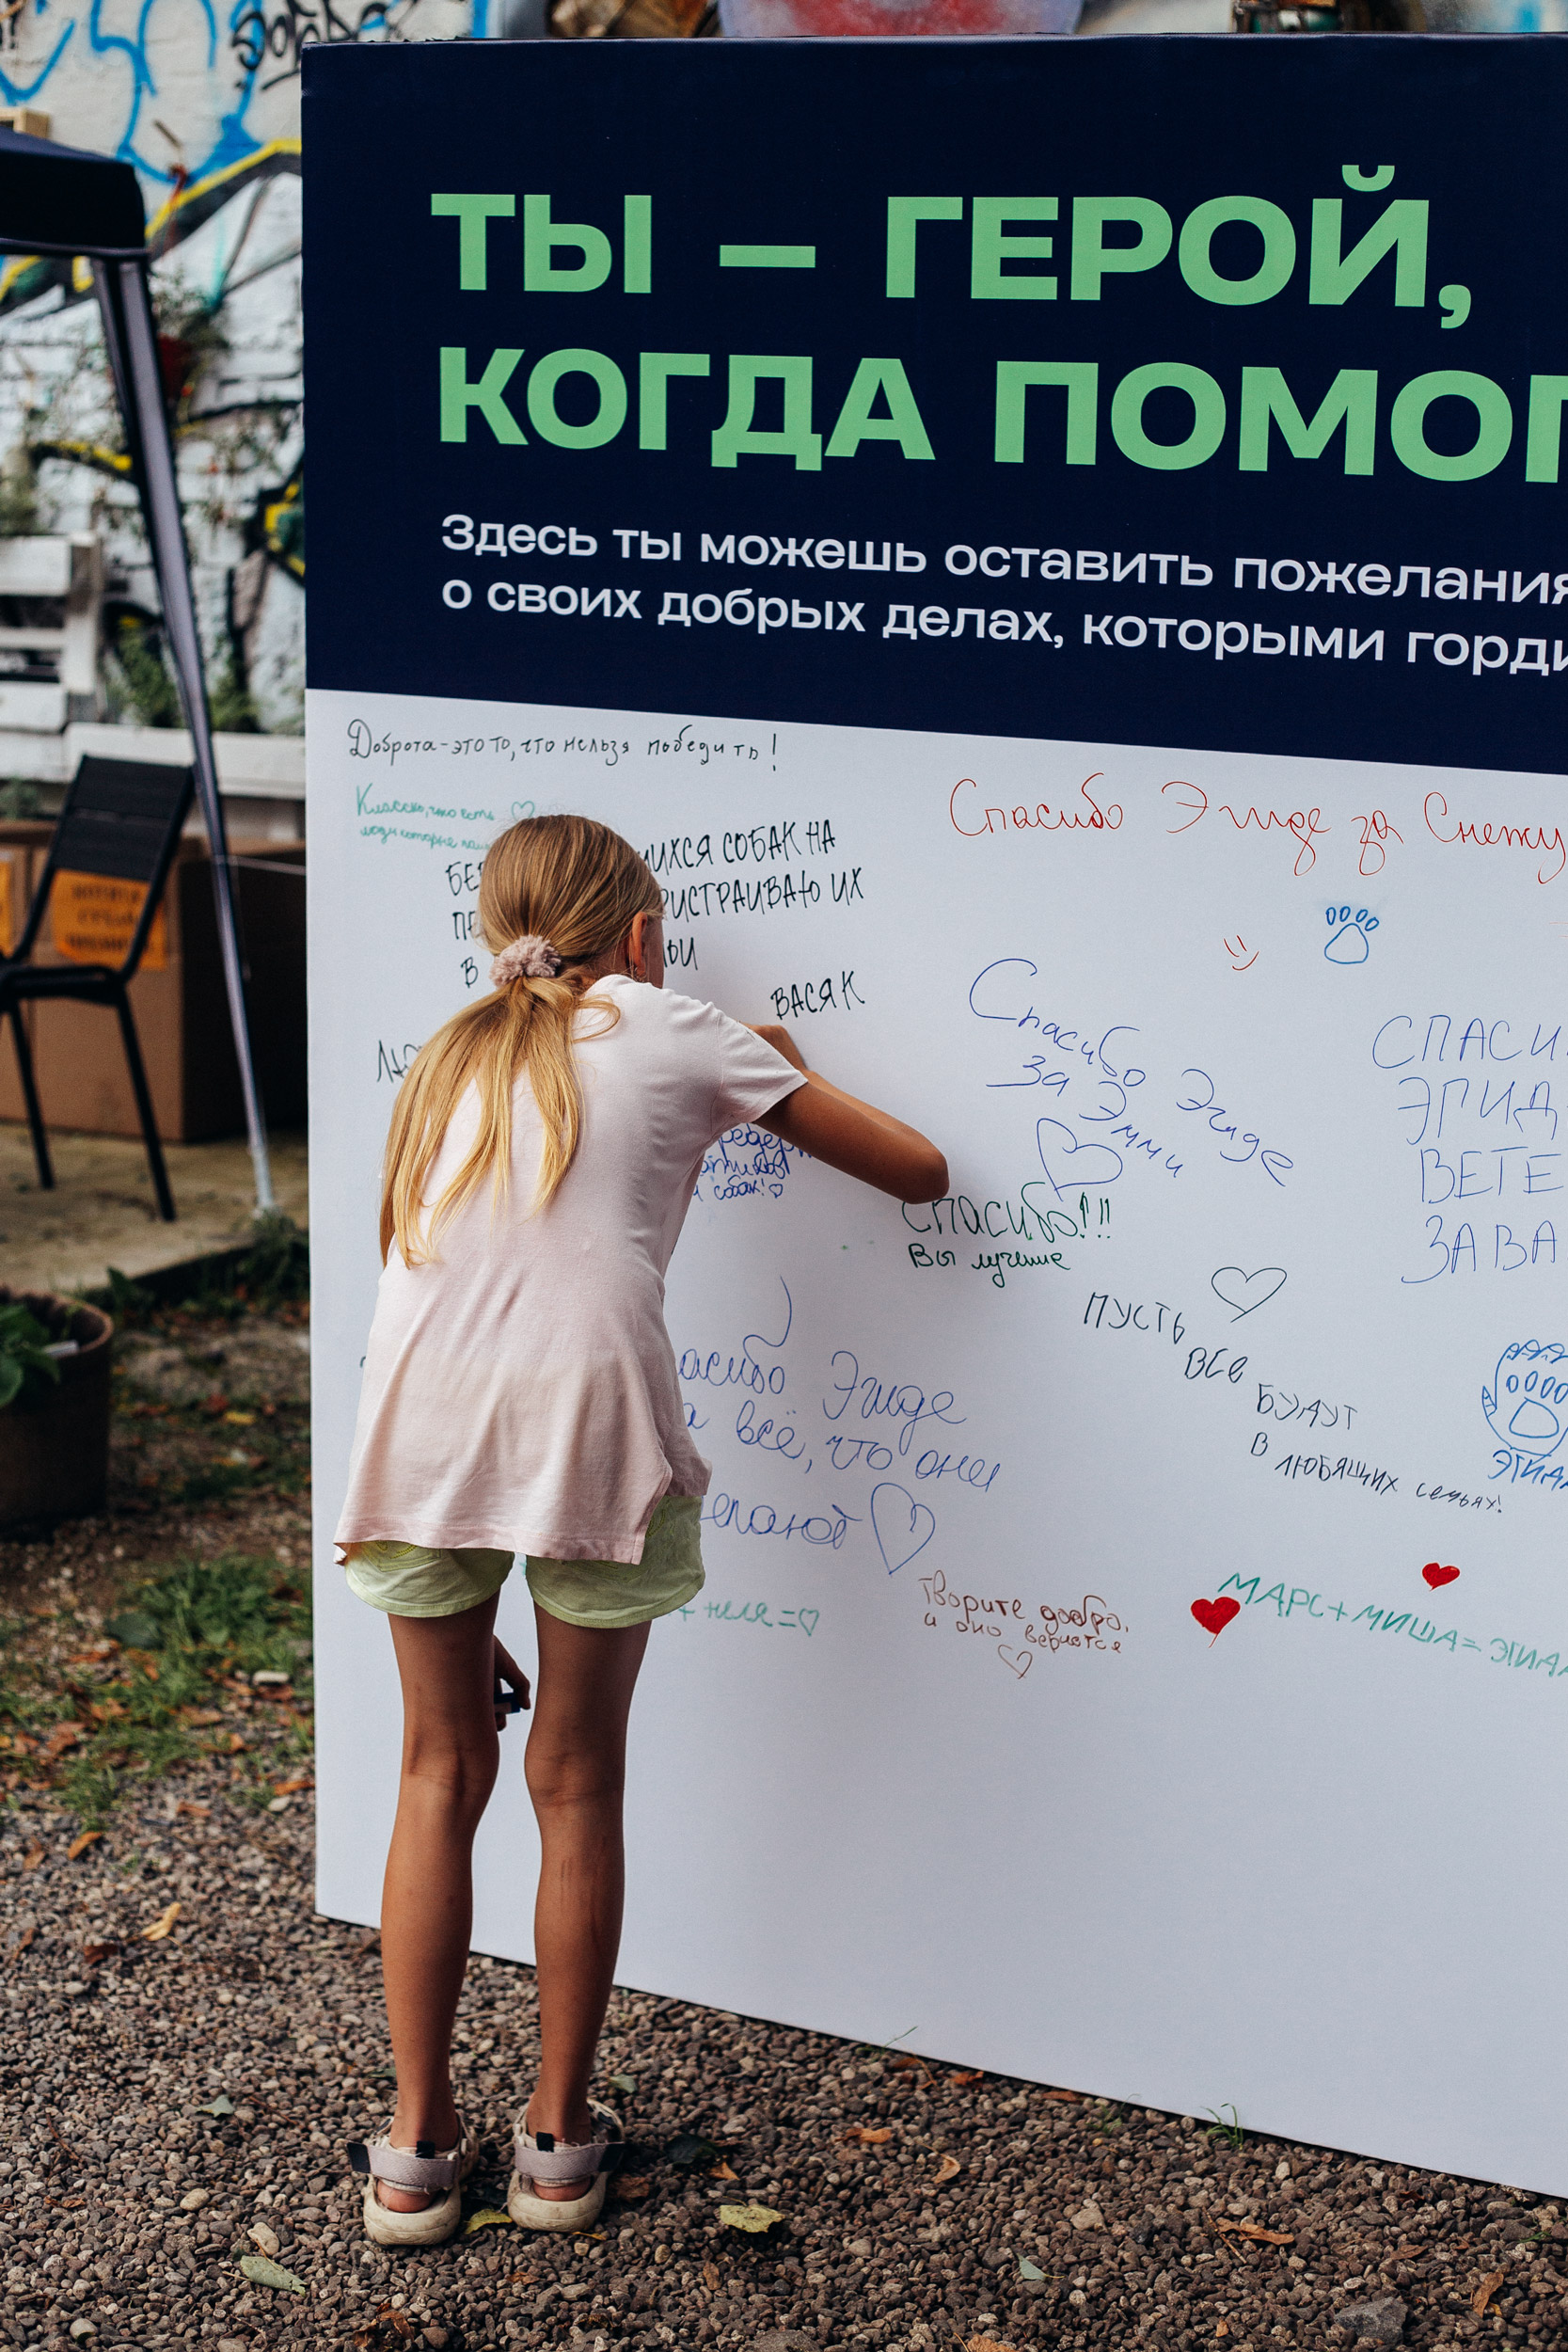 ТЫ – ГЕРОЙ,
КОГДА ПОМОГ
Здесь ты можешь оставить пожелания
о своих добрых делах, которыми горди
Доброта - это то, что нельзя победить!
Классно, что есть ♡
люди которые
БЕ ШИХСЯ СОБАК НА
ПЕ РИСТРАИВАЮ ИХ
В ЬИ
ВАСЯ К
собак! ♡
Спасибо Эгиде за Снежу
Спасибо Эгиде
за Эмми
СПАСИ
ЭГИД
ВЕТЕ
ЗА ВА
СПАСИБО!!!
Вы лучшие
ПУСТЬ
ВСЕ
БУДУТ
В ЛЮБЯЩИХ семьях!
асибо Эгиде
а всё, что они
елают ♡
ЭГИДА
+ неля = ♡
Творите добро,
и оно вернётся
♡
МАРС + МИША = ЭГИДА